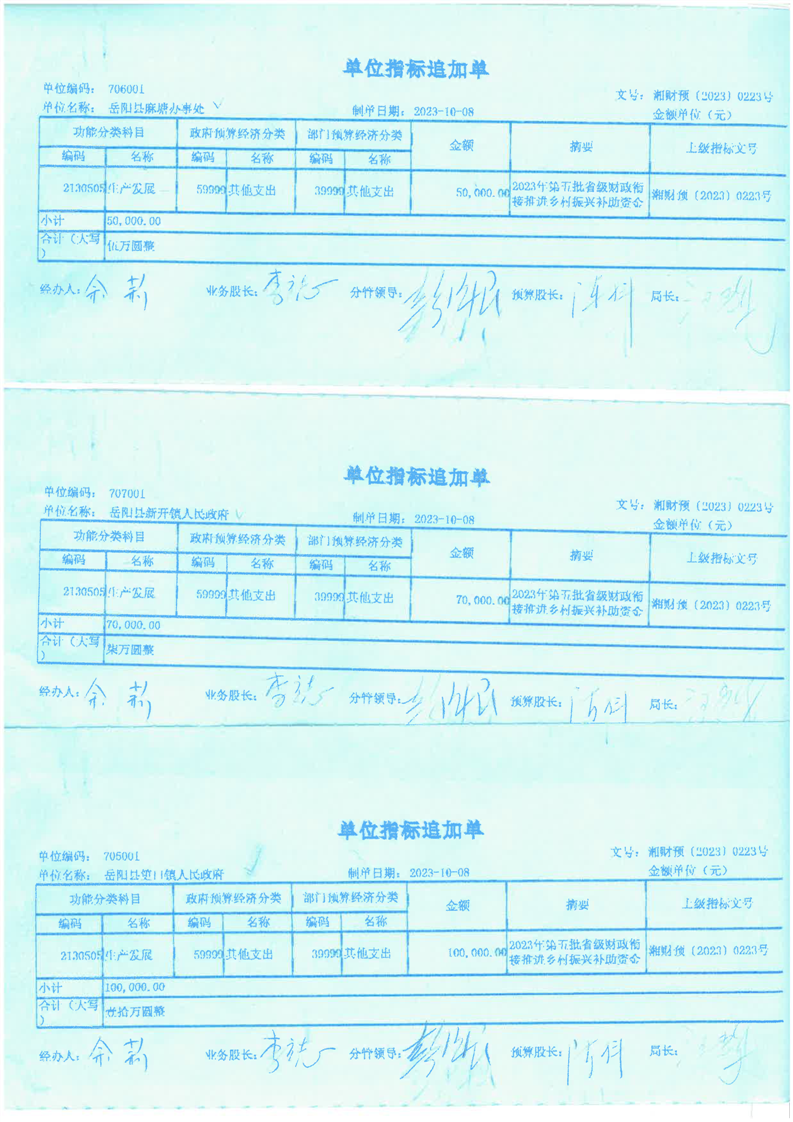 单位指标追加单
单位编码： 706001
文号： 湘财预（2023）0223号
单位名称： 岳阳县麻塘办事处
制单日期： 2023-10-08
金额单位（元）
功能分类科目 政府预算经济分类 部门预算经济分类 金额 摘要 上级指标文号
编码 名称 编码 名称 编码 名称
2130505 生产发展 59999 其他支出 39999 其他支出 50,000.00 2023年第五批省级财政衔 湘财预（2023）0223号
接推进乡村振兴补助资金
小计 50,000.00
合计（大写 伍万圆整
）
经办人： 业务股长： 李 分管领导： 预算股长： 局长：
单位指标追加单
单位编码： 707001
文号： 湘财预（2023）0223号
单位名称： 岳阳县新开镇人民政府
制单日期： 2023-10-08
金额单位（元）
功能分类科目 政府预算经济分类 部门预算经济分类 金额 摘要 上级指标文号
编码 名称 编码 名称 编码 名称
2130505 生产发展 59999 其他支出 39999 其他支出 70,000.00 2023年第五批省级财政衔 湘财预（2023）0223号
接推进乡村振兴补助资金
小计 70,000.00
合计（大写 柒万圆整
）
经办人： 业务股长： 李 分管领导： 预算股长： 局长：
单位指标追加单
单位编码： 705001
文号： 湘财预（2023）0223号
单位名称： 岳阳县筻口镇人民政府
制单日期： 2023-10-08
金额单位（元）
功能分类科目 政府预算经济分类 部门预算经济分类 金额 摘要 上级指标文号
编码 名称 编码 名称 编码 名称
2130505 生产发展 59999 其他支出 39999 其他支出 100,000.00 2023年第五批省级财政衔 湘财预（2023）0223号
接推进乡村振兴补助资金
小计 100,000.00
合计（大写 壹拾万圆整
）
经办人： 业务股长： 李 分管领导： 预算股长： 局长：